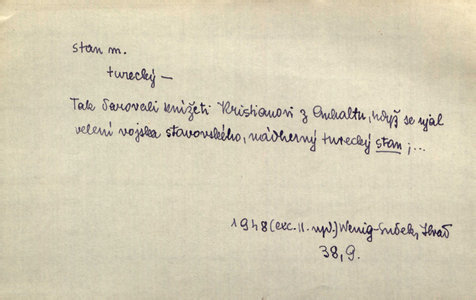 stan m.
turecký —
Tak darovali knížeti Kristianovi z Anhaltu, když se ujal
velení vojska stavovského, nádherný turecký stan ;...
1948 (exc. II. vyd.) Wenig-
38,9.